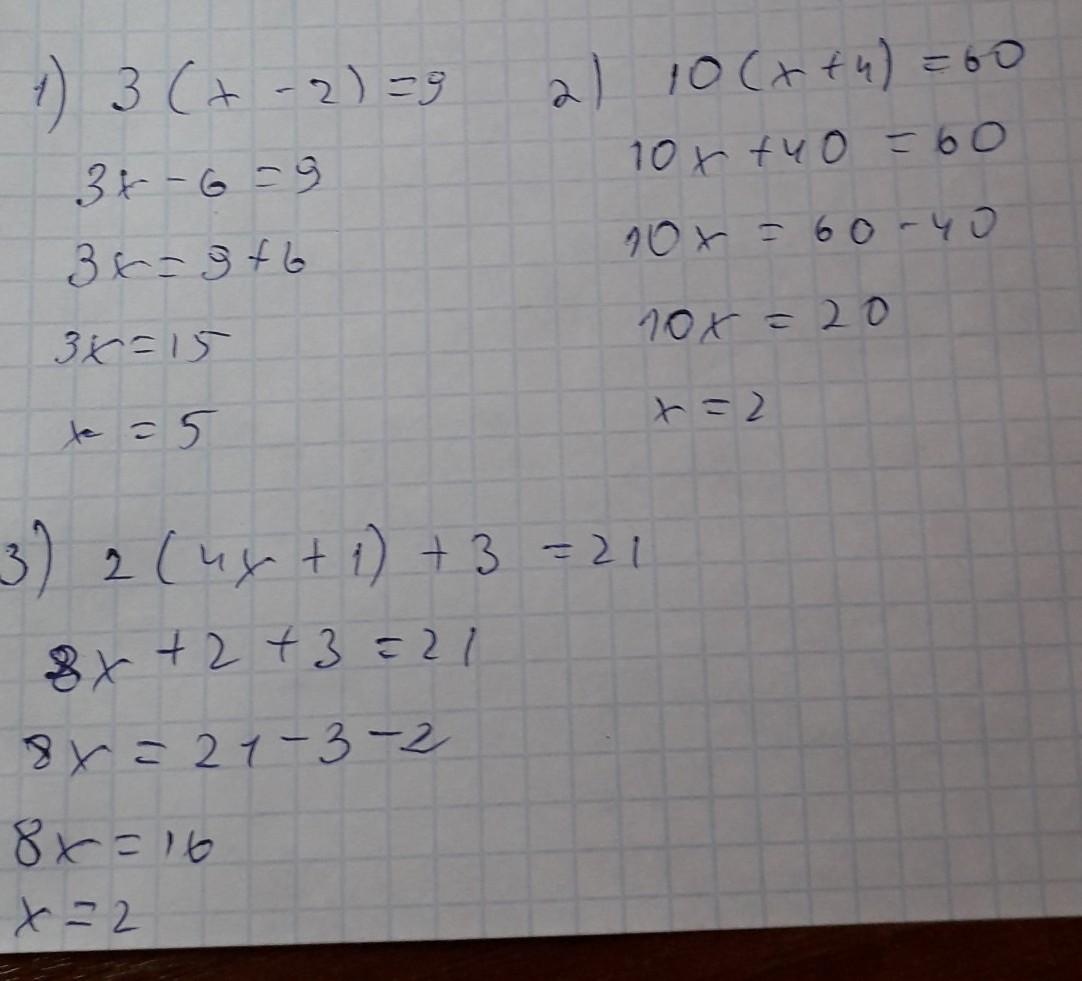 1) 3 (x - 2) = 9
3x - 6 = 9
3x = 9 + 6
3x = 15
x = 5
2) 10 (x + 4) = 60
10x + 40 = 60
10x = 60 - 40
10x = 20
x = 2
3) 2 (4x + 1) + 3 = 21
8x + 2 + 3 = 21
8x = 21 - 3 - 2
8x = 16
x = 2